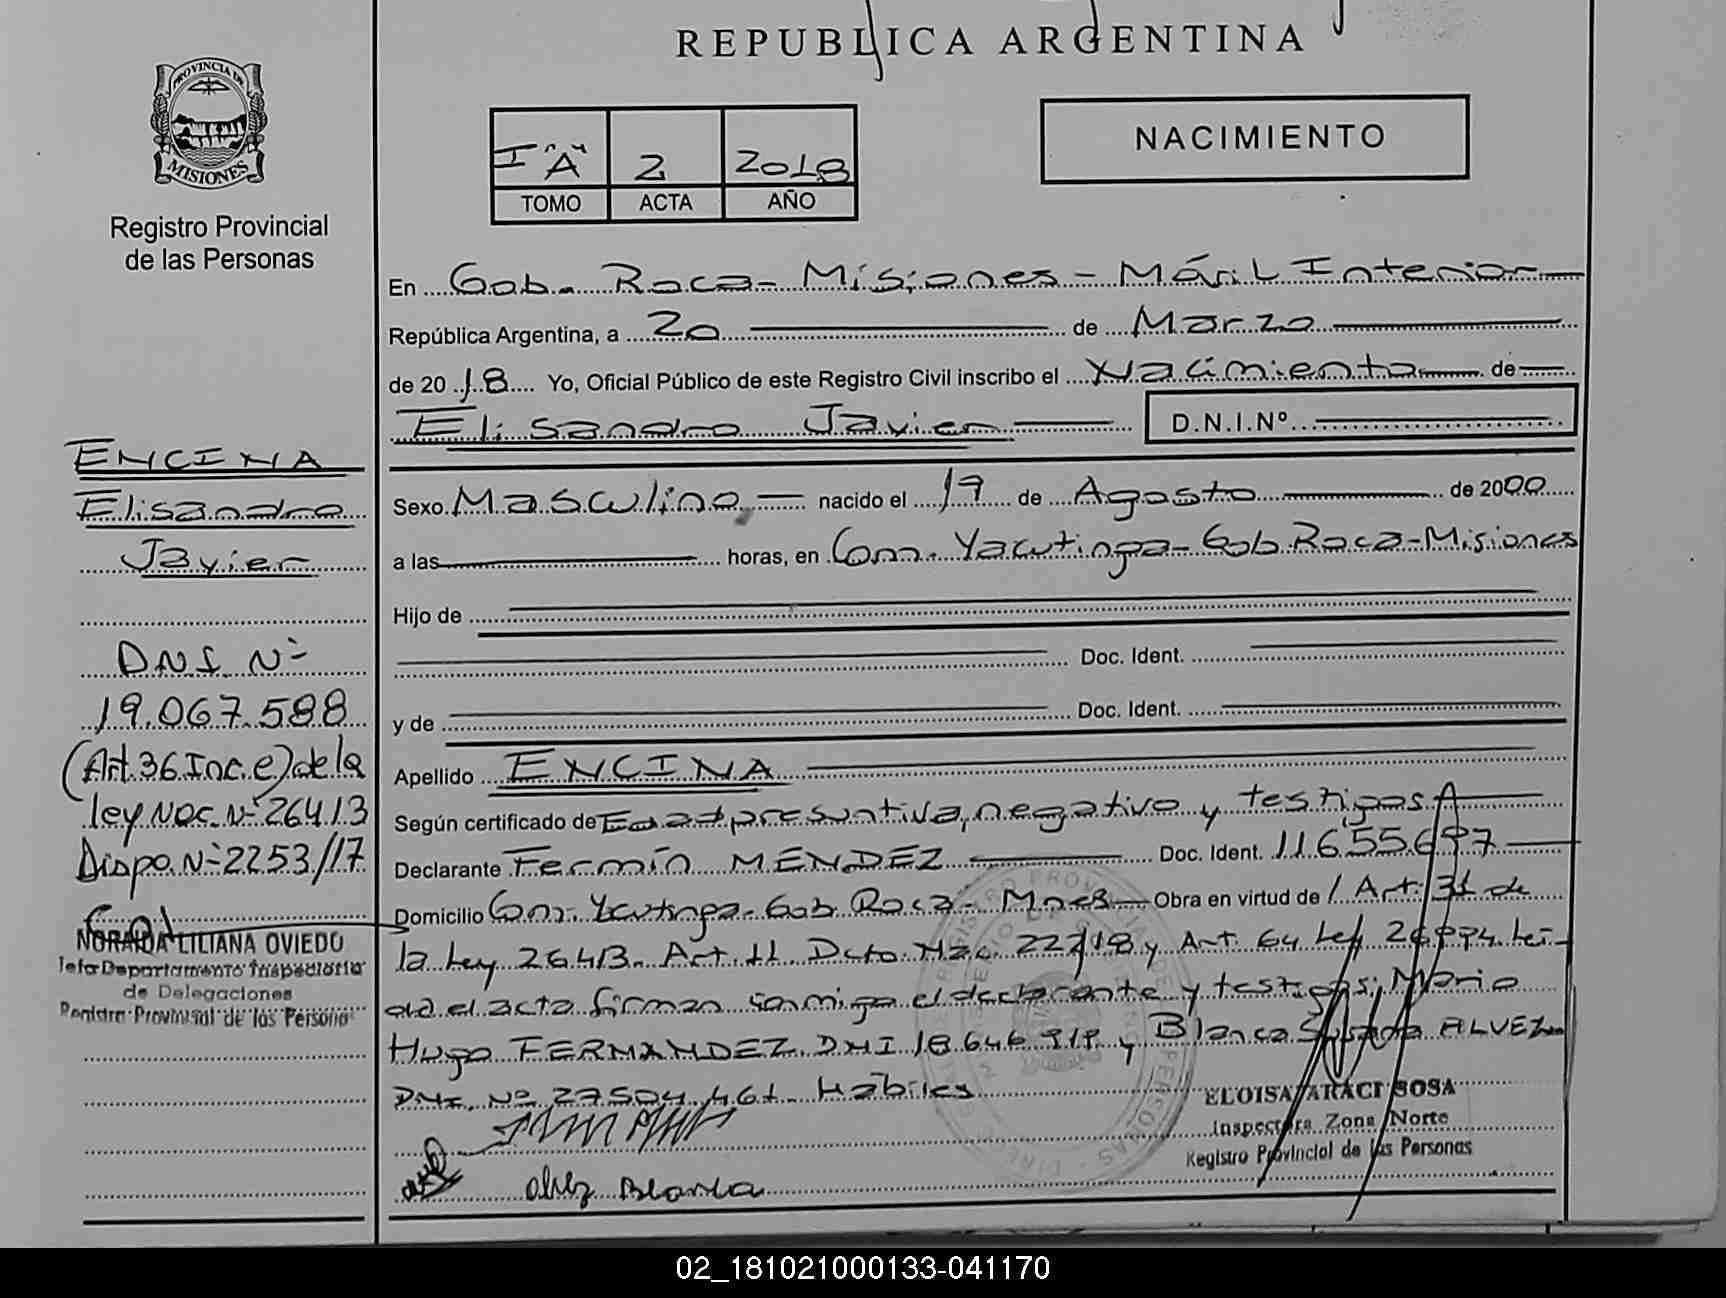 REPUBLICA ARGENTINA
PROVINCIA DE
MISIONES
Registro Provincial
de las Personas
I "A" 2 2018
TOMO ACTA AÑO
NACIMIENTO
En Gob. Roca - Misiones - Móvil Interior
República Argentina, a 20 de Marzo
de 2018 Yo, Oficial Público de este Registro Civil inscribo el Nacimiento de
Elisandro Javier D.N.I.Nº
Sexo Masculino, nacido el 19 de Agosto de 2000
a las horas, en Com. Yacutinga - Gob. Roca - Misiones
Hijo de
Doc. Ident.
y de Doc. Ident.
Apellido ENCINA
Según certificado de Edad presuntiva, negativo y testigos
Declarante Fermín MENDEZ Doc. Ident. 11655697
Domicilio Com. Yacutinga - Gob. Roca - Mnes Obra en virtud de / Art. 31 de
la Ley 26413. Art. 11. Dcto. Nac. 222/18 y Art. 64 Ley 26994 Lei-
da el acta firman conmigo el declarante y testigos: Mario
Hugo FERNANDEZ DNI 18.646.918 y Blanca Susana ALVEZ
DNI. Nº 27504461. Hábiles
Alvez Blanca
ELOISA ARACI SOSA
Inspectora Zona Norte
Registro Provincial de las Personas
ENCINA
Elisandro
Javier
DNI Nº
19.067.588
(Art. 36 Inc. e) de la
ley Nac. Nº 26413
Dispo. Nº 2253/17
NORAIDA LILIANA OVIEDO
Jefa Departamento Inspectoría
de Delegaciones
Registro Provincial de las Personas
02_181021000133-041170